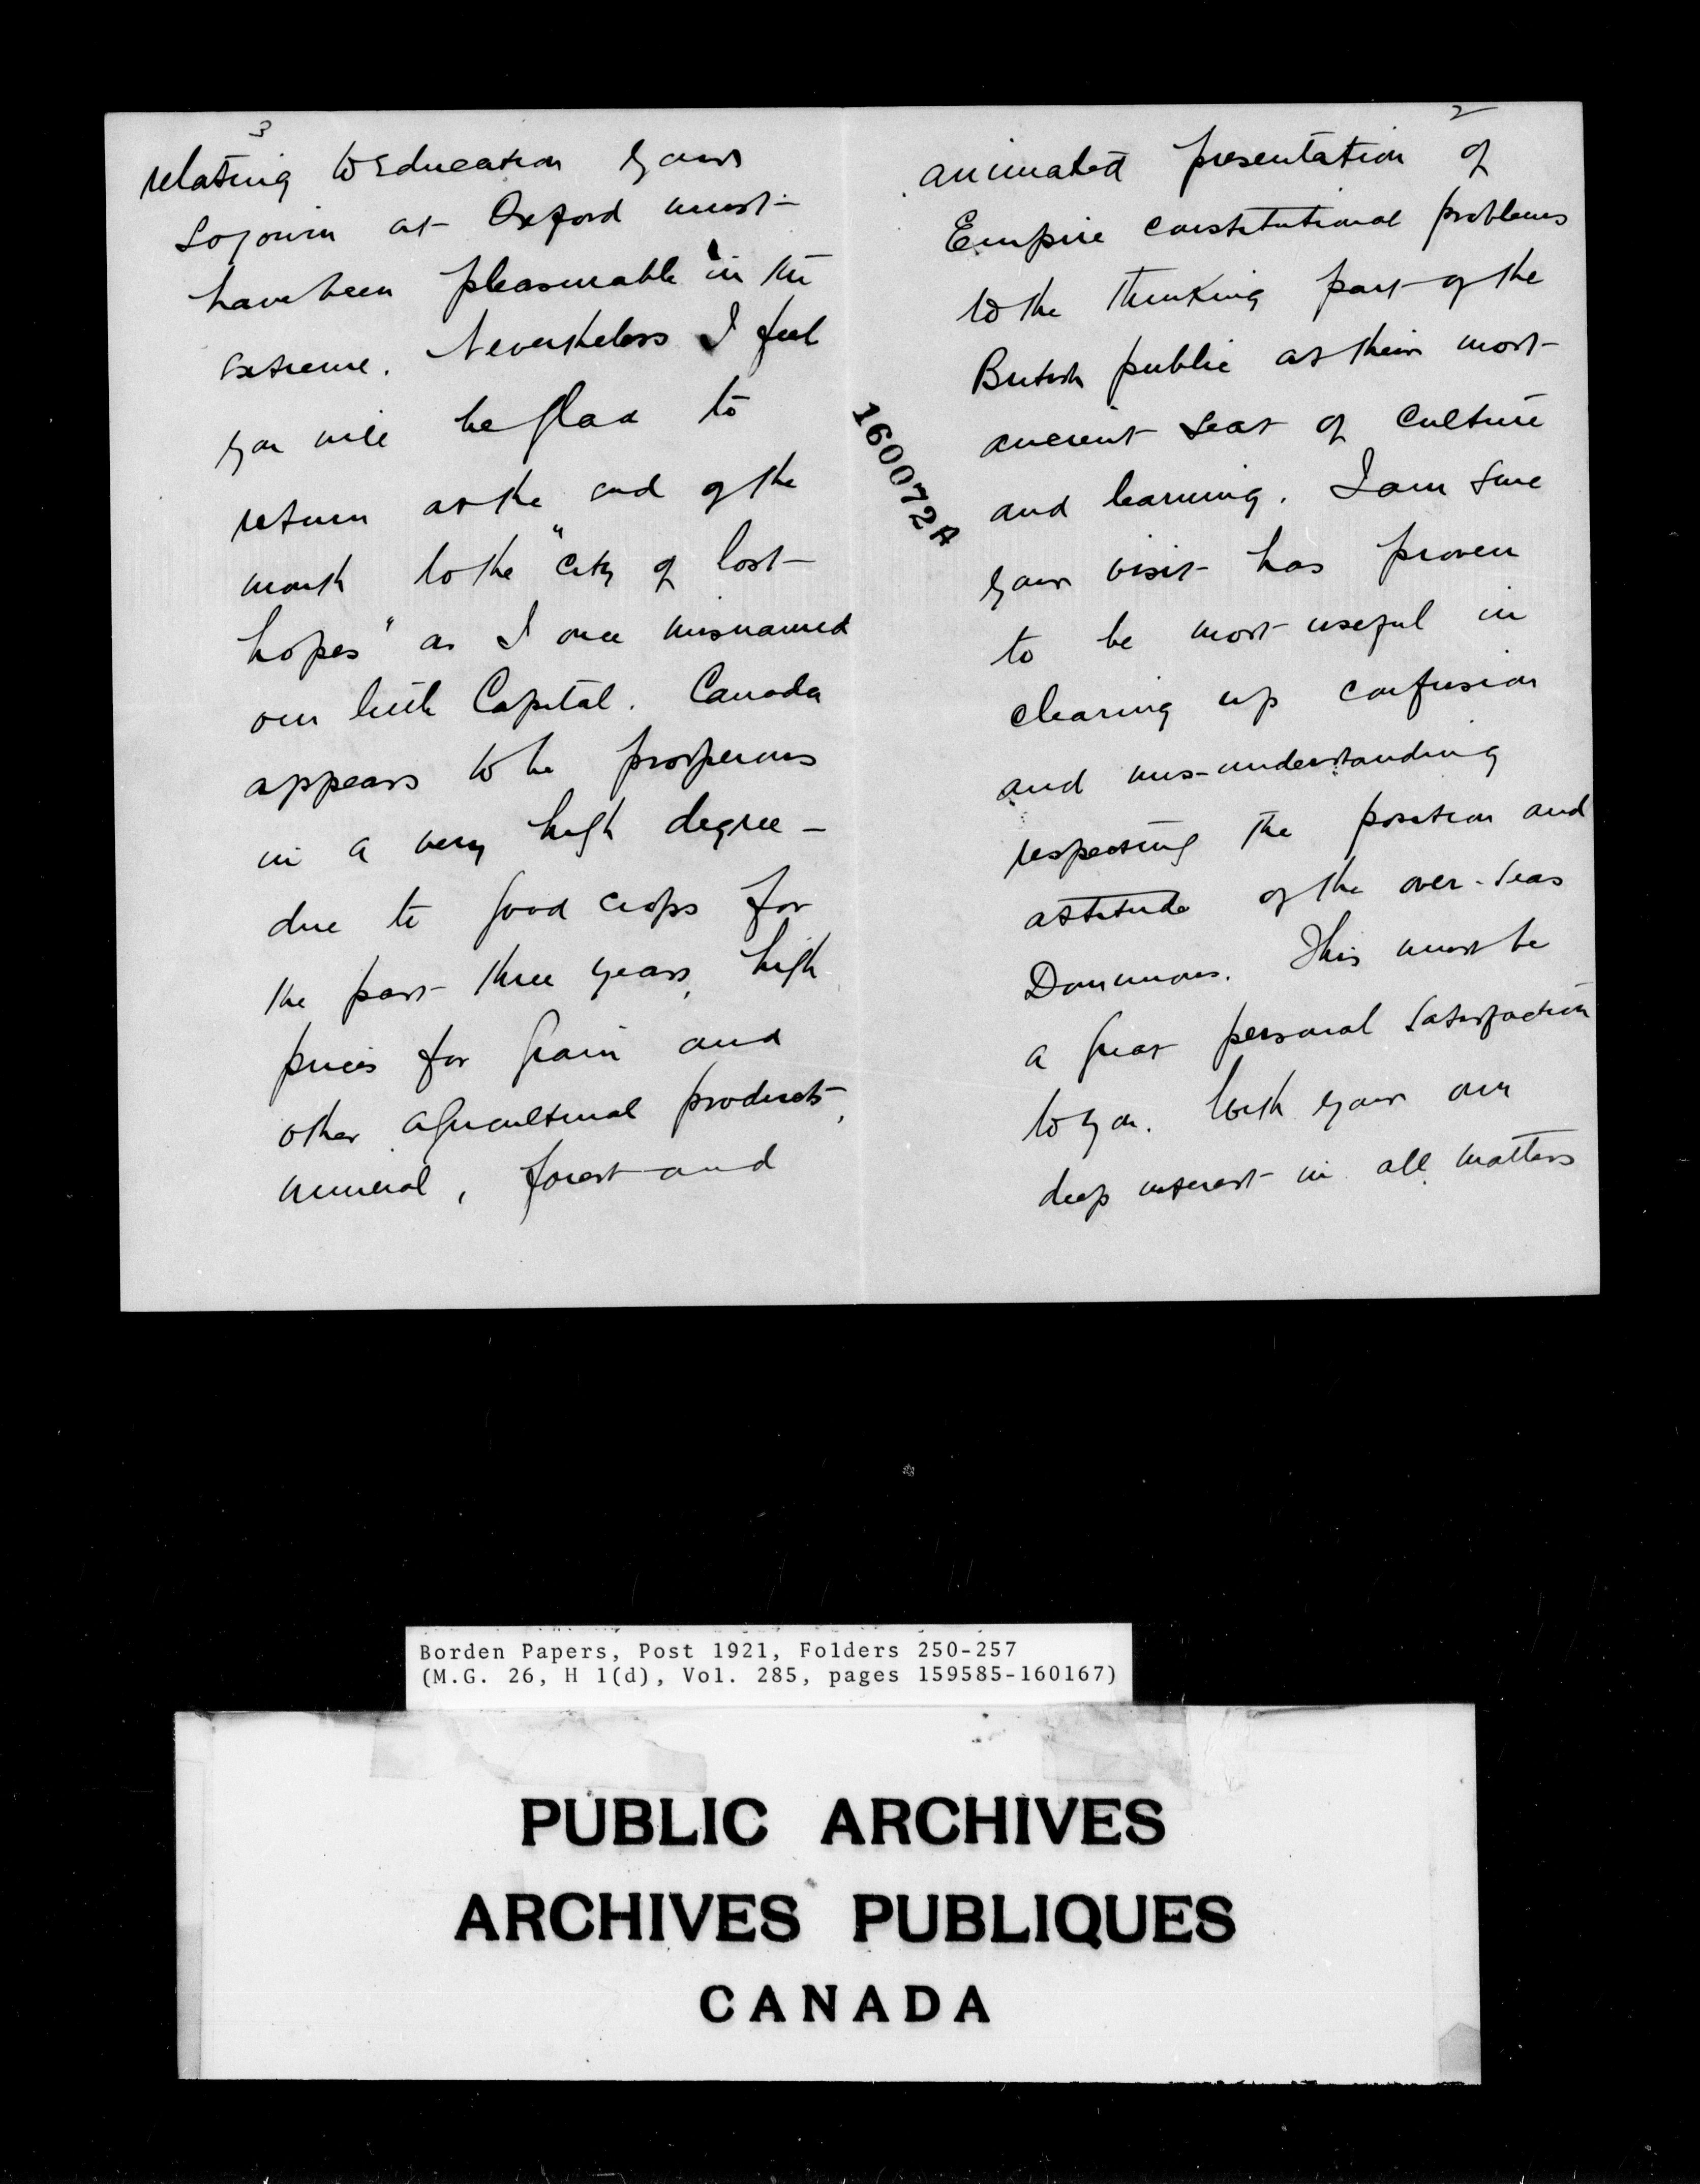 2
animated presentation of
Empire constitutional problems
to the thinking part of the
British public at their most
ancient seat of culture
and learning. I am sure
your visit has proven
to be most useful in
clearing up confusion
and mis-understanding
respecting the position and
attitude of the over-seas
Dominions. This must be
a great personal satisfaction
to you. With your own
deep interest in all matters
3
relating to Education your
sojourn at Oxford must
have been pleasurable in the
extreme. Nevertheless I feel
you will be glad to
return at the end of the
month to the "city of lost
hopes" as I once misnamed
our little Capital. Canada
appears to be prosperous
in a very high degree -
due to good crops for
the past three years, high
prices for grain and
other agricultural products,
mineral, forest and
160072A
Borden Papers, Post 1921, Folders 250-257
(M.G. 26, H 1(d), Vol. 285, pages 159585-160167)
PUBLIC ARCHIVES
ARCHIVES PUBLIQUES
CANADA